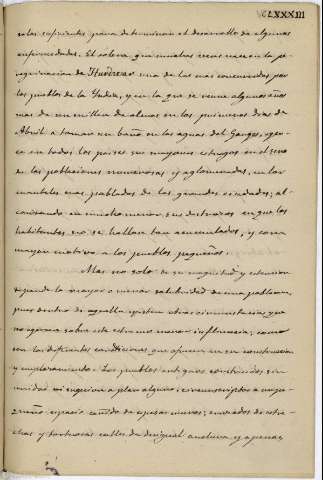 CLXXXIII
solas suficientes para determinar el desarrollo de algunas
enfermedades. El cólera que muchas veces nace en la pe-
regrinacion de Hurdwar una de las mas concurridas por
los pueblos de la Yndia, y en la que se reune algunos años
mas de un millon de almas en los primeros dias de
Abril a tomar un baño en las aguas del Ganges, ejer-
ce en todos los paises sus mayores estragos en el seno
de las poblaciones numerosas y aglomeradas, en los
cuarteles mas poblados de las grandes ciudades; al-
canzando en mucho menor sus destrozos en que los
habitantes no se hallan tan acumulados, y con
mayor motivo a los pueblos pequeños.
Mas no solo de su magnitud y estension
depende la mayor o menor salubridad de una poblacion,
pues dentro de aquella existen otras circunstancias que
no ejercen sobre este estremo menor influencia; como
son las diferentes condiciones que ofrecen en su construccion
y emplazamiento. Los pueblos antiguos construidos sin
unidad ni sujecion a plan alguno; circunscriptos a un pe-
queño espacio ceñido de espesos muros; cruzados de estre-
chas y tortuosas calles de desigual anchura y apenas